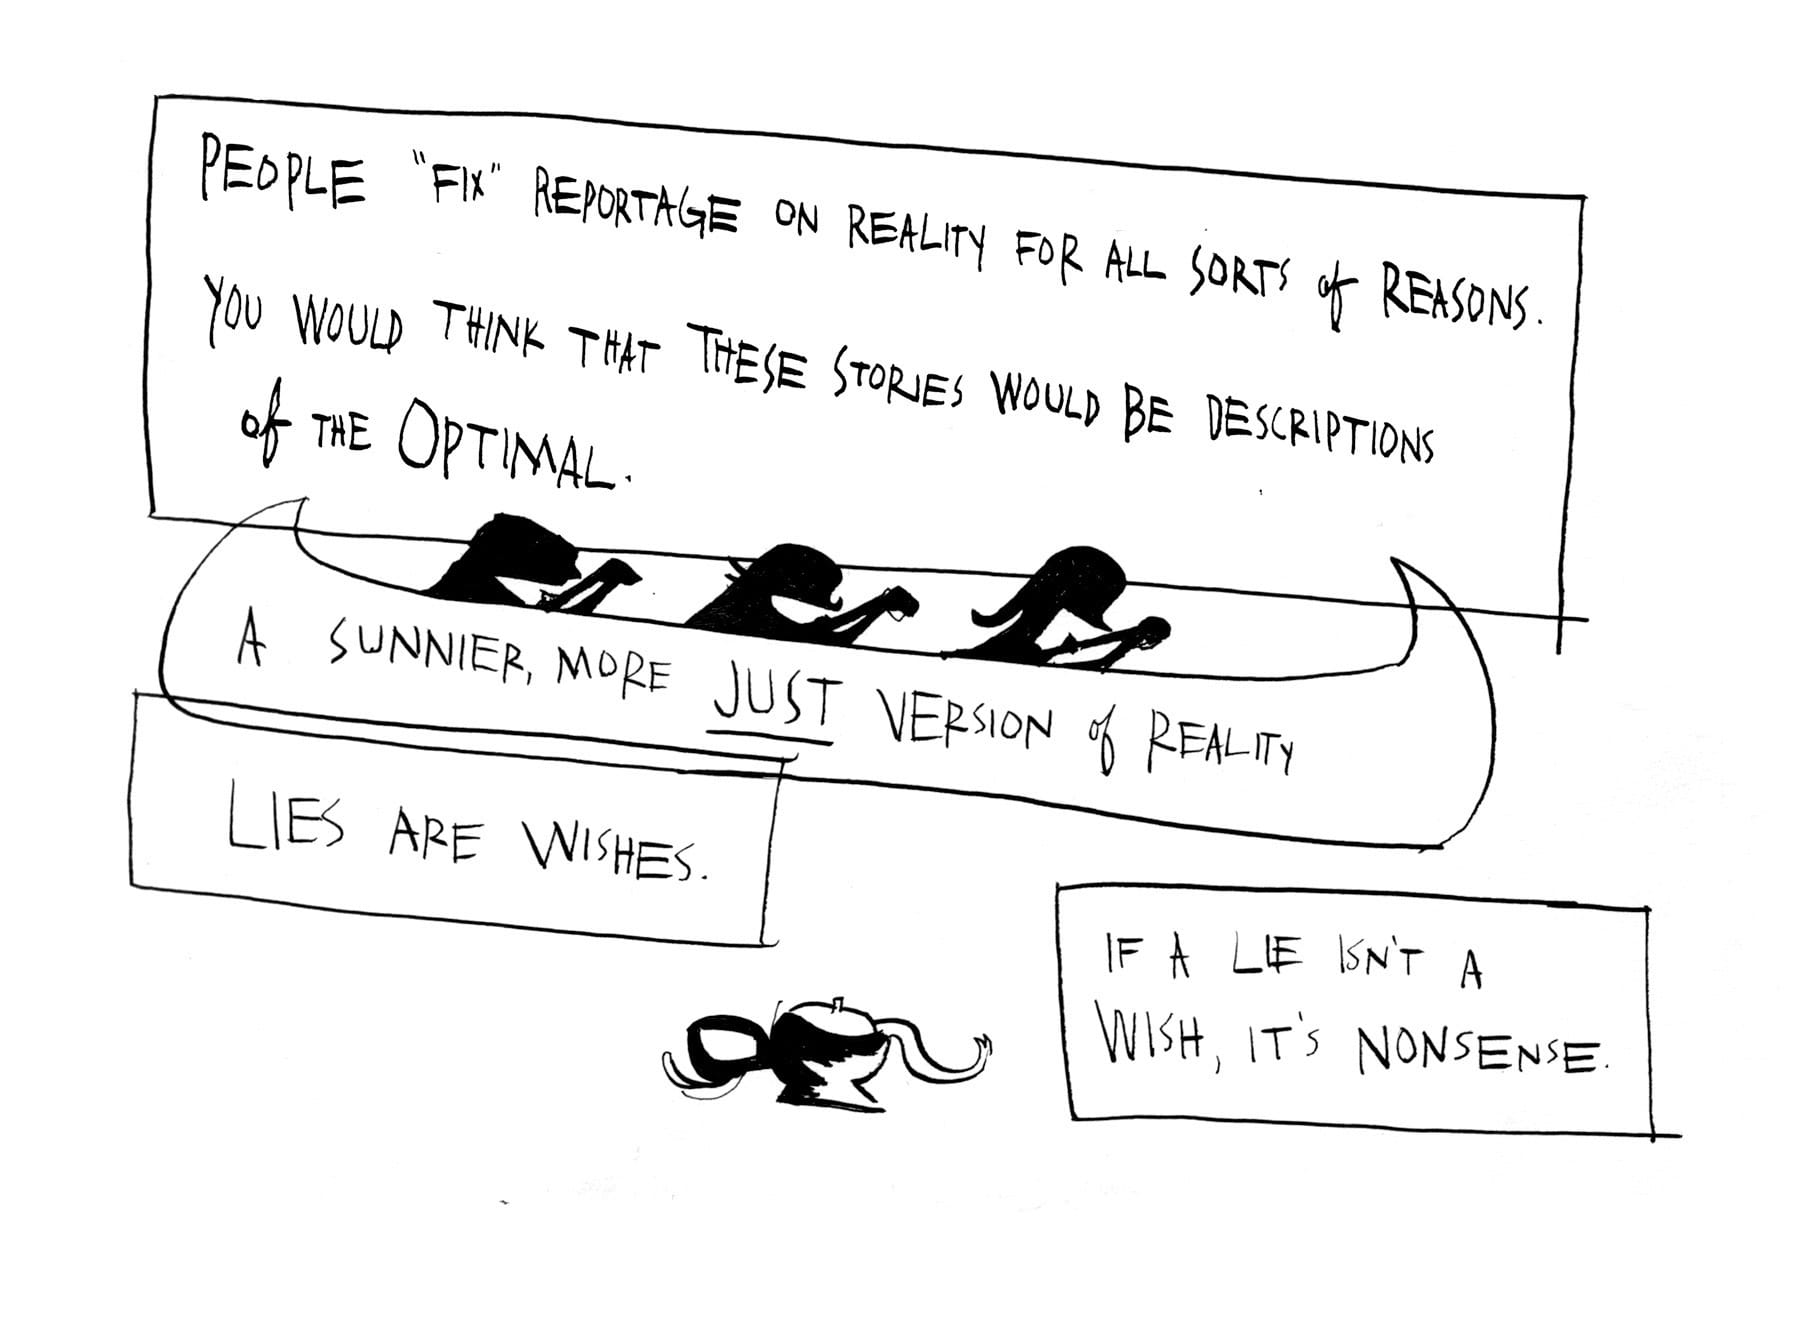 PEOPLE "FIX" REPORTAGE ON REALITY FOR ALL SORTS of REASONS.
YOU WOULD THINK THAT THESE STORIES WOULD BE DESCRIPTIONS
of THE OPTIMAL.
A SUNNIER, MORE JUST VERSION of REALITY
LIES ARE WISHES.
IF A LIE ISN'T A
WISH, IT'S NONSENSE.